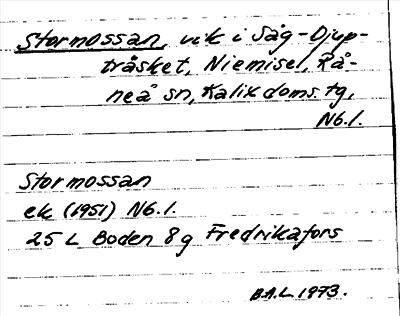 Stormossan, vik i Såg-Djup-
träsket, Niemisel, Rå-
neå sn, Kalix doms. tg,
Nb.l.
Stormossan
ek (1951) Nb.l.
25 L Boden 8g Fredrikafors
B.A.L 1973.